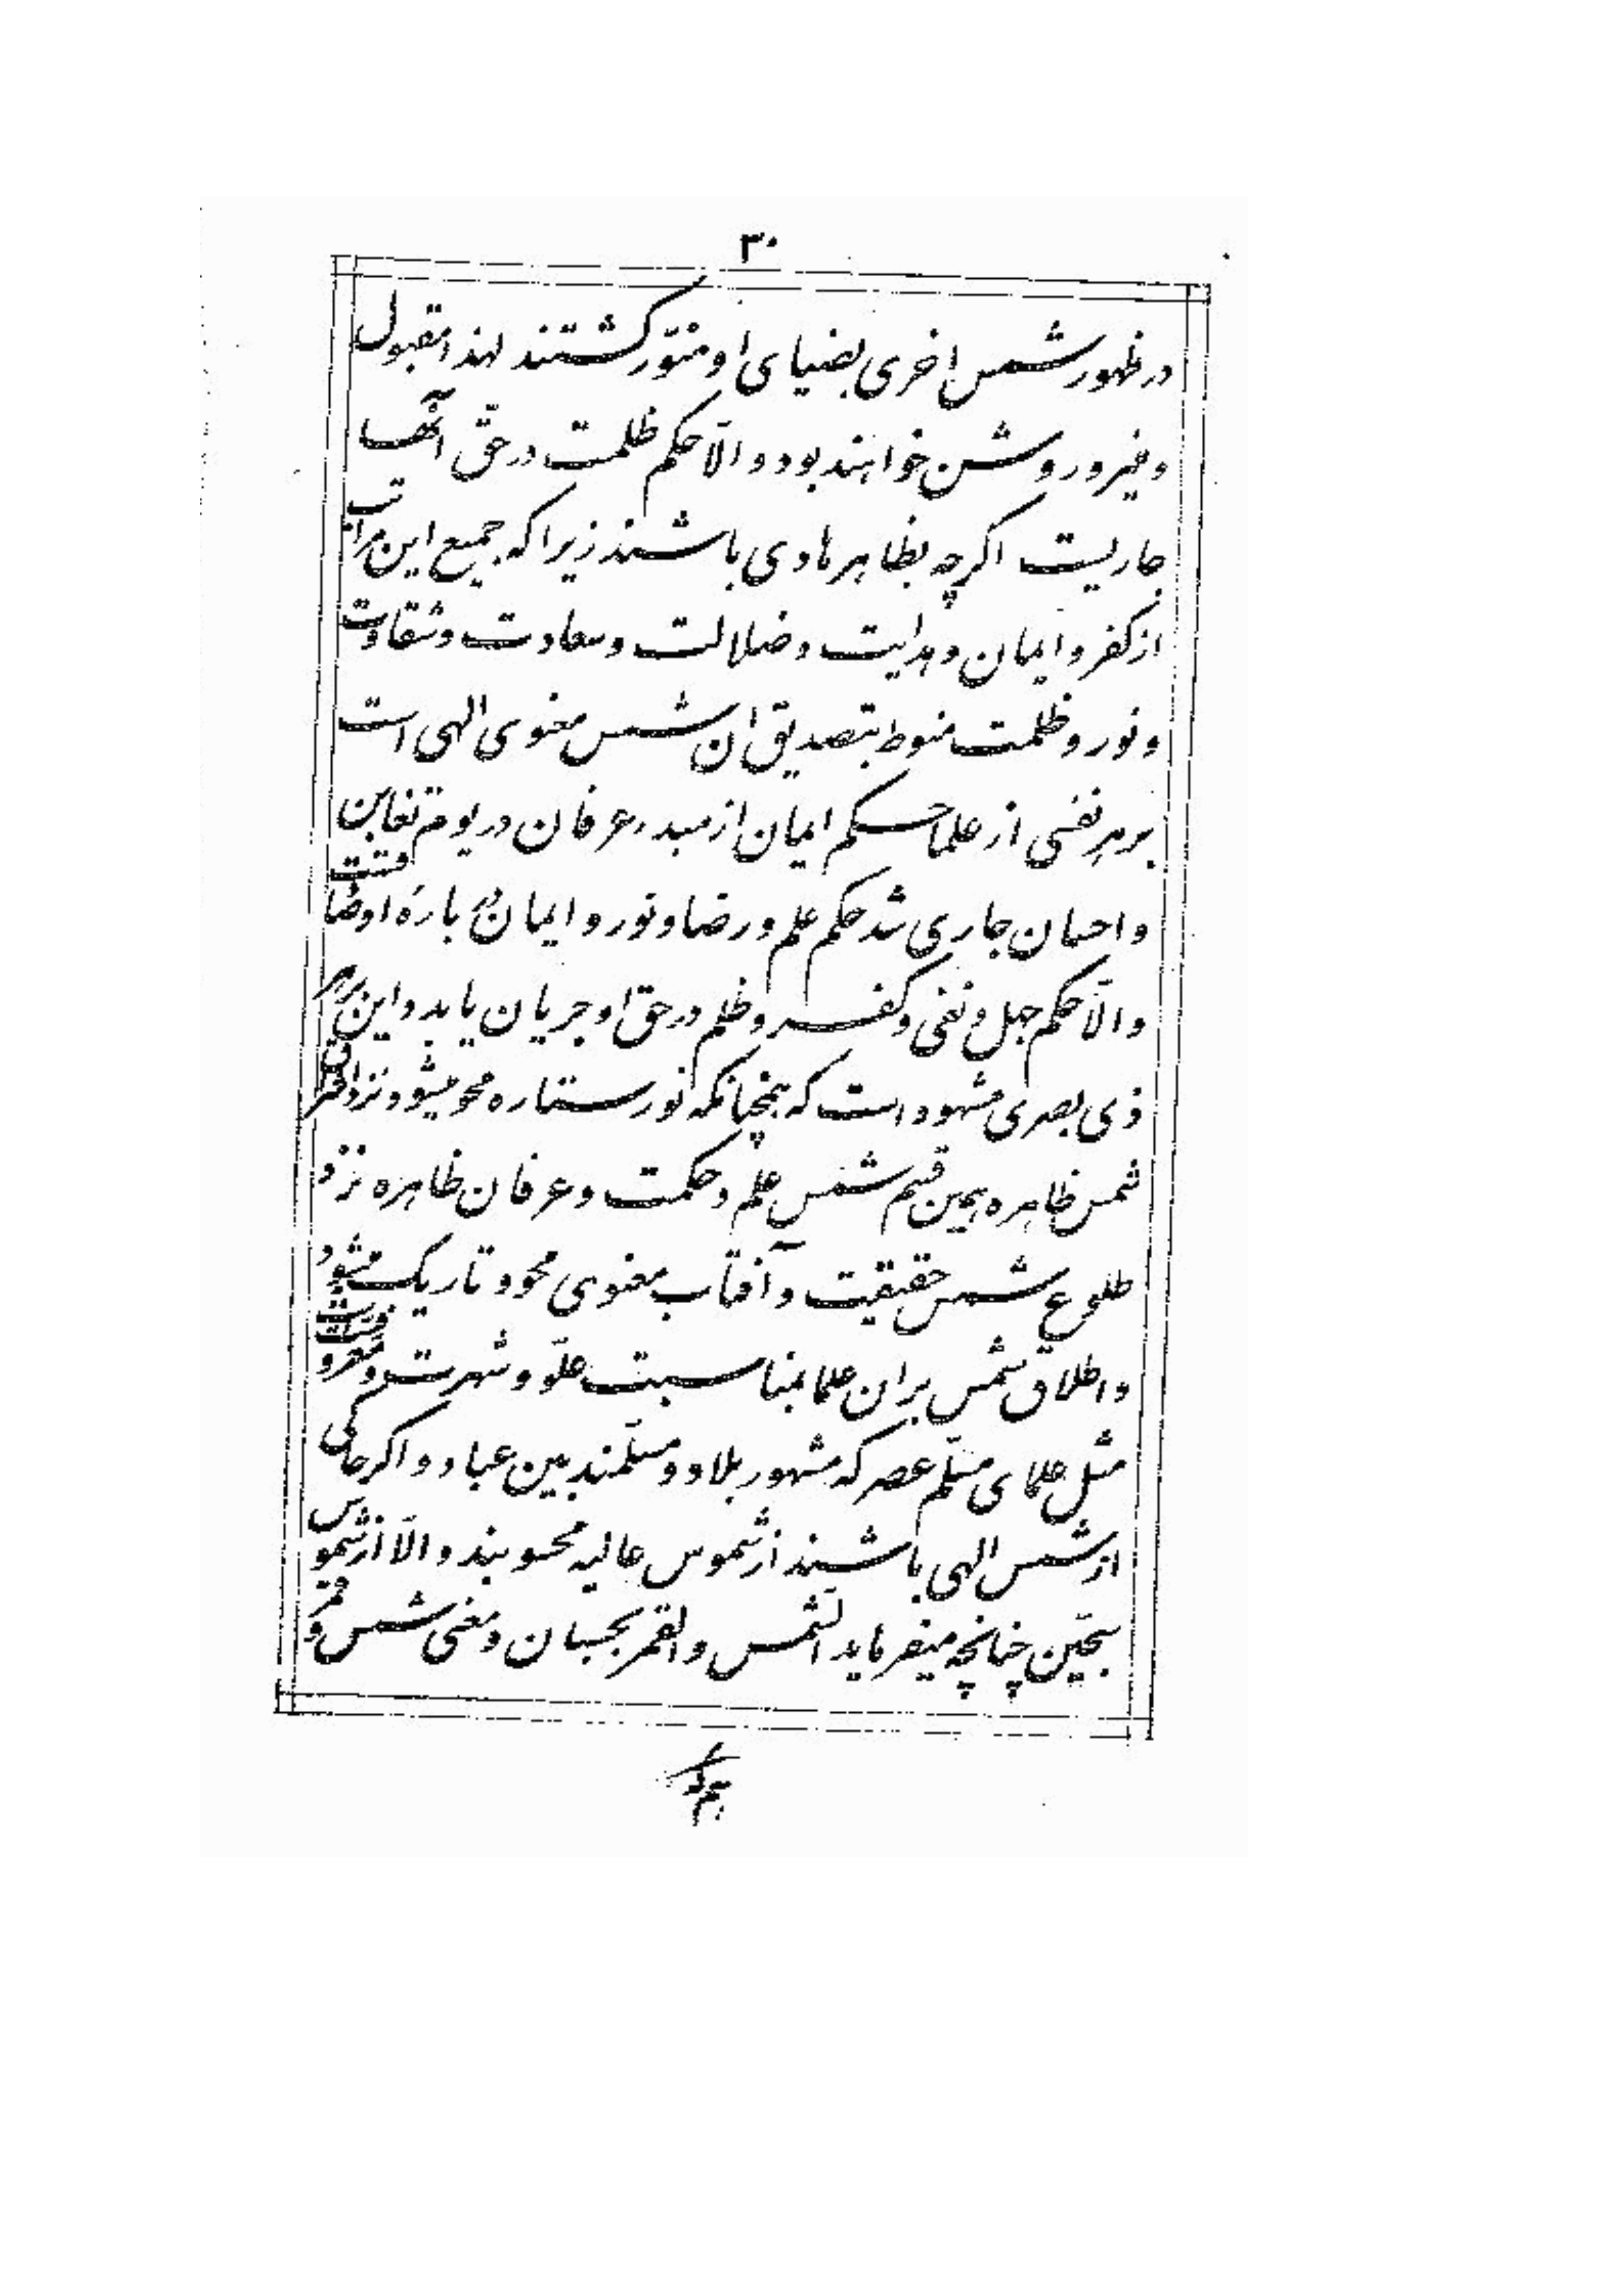 ۳۰
در ظهور شمس اخری بضیای او منوّر کشتند لهذا مقبول
و منیر و روشن خواهند بود و الّا حکم ظلمت در حقّ آنها
جاریست اکرچه بظاهر هادی باشند زیرا که جمیع این مراتب
از کفر و ایمان و هدایت و ضلالت و سعادت و شقاوت
و نور و ظلمت منوط بتصدیق ان شمس معنوی الهی است
بر هر نفسی از علما حکم ایمان از مبدء عرفان در یوم تغابن
و احسان جاری شد حکم علم و رضا و نور و ایمان در بارهٔ او صادقست
و الّا حکم جهل و نفی و کفر و ظلم در حق او جریان یابد و این بر هر
ذی بصری مشهود است که همچنانکه نور ستاره محو میشود نزد اشراق
شمس ظاهره همین قسم شمس علم و حکمت و عرفان ظاهره نزد
طلوع شمس حقیقت و آفتاب معنوی محو و تاریک میشود
و اطلاق شمس بر ان علما بمناسبت علوّ و شهرت و معروفیت است
مثل علمای مسلّم عصر که مشهور بلاد و مسلّمند بین عباد و اکر حاکی
از شمس الهی باشند از شموس عالیه محسوبند و الّا از شموس
سجّین چنانچه میفرماید الشّمس و القمر بحسبان و معنی شمس و قمر
هم که